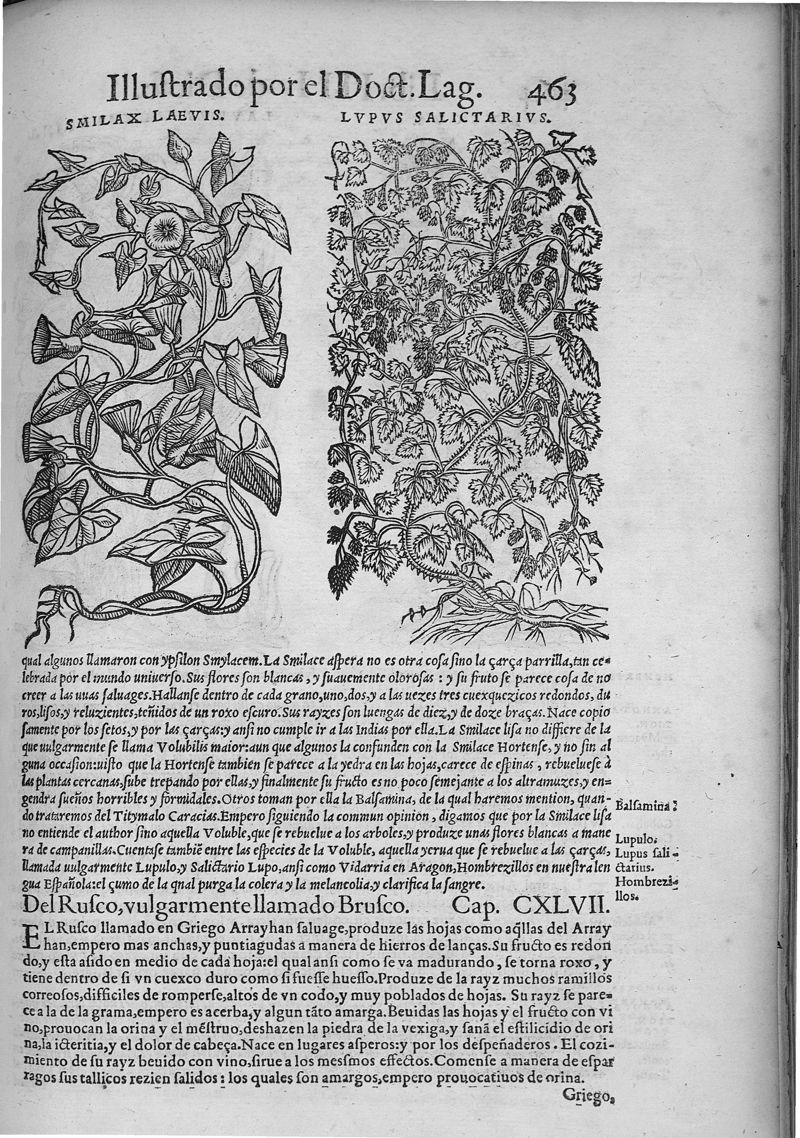 Illuſtrado por el Doct. Lag. 463
SMILAX LAEVIS.
LVPVS SALICTARIVS.
qual algunos llamaron con ypſilon Smylacem. La Smilace aſpera no es otra coſa ſino la çarça parrilla, tan ce-
lebrada por el mundo uniuerſo. Sus flores ſon blancas, y ſuauemente oloroſas: y ſu fruto ſe parece coſa de no
creer a las uuas ſaluages. Hallanſe dentro de cada grano, uno, dos, y a las uezes tres cuexquezicos redondos, du
ros, liſos, y reluzientes, teñidos de un roxo eſcuro. Sus rayzes ſon luengas de diez, y de doze braças. Nace copio
ſamente por los ſetos, y por las çarças: y anſi no cumple ir a las Indias por ella. La Smilace liſa no differe de la
que uulgarmente ſe llama Volubilis maior: aun que algunos la confunden con la Smilace Hortenſe, y no ſin al
guna occaſion: uiſto que la Hortenſe tambien ſe parece a la yedra en las hojas, carece de eſpinas, rebuelueſe à
las plantas cercanas, ſube trepando por ellas, y finalmente ſu fructo es no poco ſemejante a los altramuzes, y en-
gendra ſueños horribles y formidales. Otros toman por ella la Balſamina, de la qual haremos mention, quan-
do trataremos del Titymalo Caracias. Empero ſiguiendo la commun opinion, digamos que por la Smilace liſa
no entiende el author ſino aquella Voluble, que ſe rebuelue a los arboles, y produze unas flores blancas a mane
ra de campanillas. Cuentaſe tambiẽ entre las eſpecies de la Voluble, aquella yerua que ſe rebuelue a las çarças,
llamada uulgarmente Lupulo, y Salictario Lupo, anſi como Vidarria en Aragon, Hombrezillos en nueſtra len
gua Eſpañola: el çumo de la qual purga la colera y la melancolia, y clarifica la ſangre.
Balſamina:
Lupulo.
Lupus ſali-
ctarius.
Hombrezi-
llos.
Del Ruſco, vulgarmente llamado Bruſco. Cap. CXLVII.
EL Ruſco llamado en Griego Arrayhan ſaluage, produze las hojas como aq̃llas del Array
han, empero mas anchas, y puntiagudas a manera de hierros de lanças. Su fructo es redon
do, y eſta aſido en medio de cada hoja: el qual anſi como ſe va madurando, ſe torna roxo, y
tiene dentro de ſi vn cuexco duro como ſi fueſſe hueſſo. Produze de la rayz muchos ramillos
correoſos, difficiles de romperſe, altos de vn codo, y muy poblados de hojas. Su rayz ſe pare-
ce a la de la grama, empero es acerba, y algun tãto amarga. Beuidas las hojas y el fructo con vi
no, prouocan la orina y el mẽſtruo, deshazen la piedra de la vexiga, y ſanã el eſtilicidio de ori
na, la icteritia, y el dolor de cabeça. Nace en lugares aſperos: y por los deſpeñaderos. El cozi-
miento de ſu rayz beuido con vino, ſirue a los meſmos effectos. Comenſe a manera de eſpar
ragos ſus tallicos rezien ſalidos: los quales ſon amargos, empero prouocatiuos de orina.
Griego,